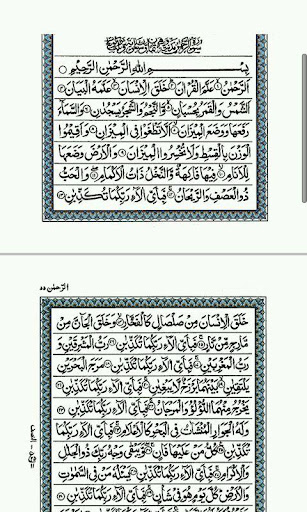 بِسْمِ اللهِ الرَّحْمٰنِ الرَّحِيْمِ
اَلرَّحْمٰنُ ۙ عَلَّمَ الْقُرْاٰنَ ؕ خَلَقَ الْاِنْسَانَ ۙ عَلَّمَهُ الْبَيَانَ
اَلشَّمْسُ وَالْقَمَرُ بِحُسْبَانٍ ۙ وَّالنَّجْمُ وَالشَّجَرُ يَسْجُدٰنِ وَالسَّمَآءَ
رَفَعَهَا وَوَضَعَ الْمِيْزَانَ ۙ اَلَّا تَطْغَوْا فِى الْمِيْزَانِ وَاَقِيْمُوا
الْوَزْنَ بِالْقِسْطِ وَلَا تُخْسِرُوا الْمِيْزَانَ وَالْاَرْضَ وَضَعَهَا
لِلْاَنَامِ ۙ فِيْهَا فَاكِهَةٌ وَّالنَّخْلُ ذَاتُ الْاَكْمَامِ ۖ وَالْحَبُّ
ذُو الْعَصْفِ وَالرَّيْحَانُ ۚ فَبِاَىِّ اٰلَآءِ رَبِّكُمَا تُكَذِّبٰنِ ۱۳
الرَّحْمٰن ۵۵
خَلَقَ الْاِنْسَانَ مِنْ صَلْصَالٍ كَالْفَخَّارِ ۙ وَخَلَقَ الْجَآنَّ مِنْ
مَّارِجٍ مِّنْ نَّارٍ ۚ فَبِاَىِّ اٰلَآءِ رَبِّكُمَا تُكَذِّبٰنِ رَبُّ الْمَشْرِقَيْنِ وَ
رَبُّ الْمَغْرِبَيْنِ ۚ فَبِاَىِّ اٰلَآءِ رَبِّكُمَا تُكَذِّبٰنِ مَرَجَ الْبَحْرَيْنِ
يَلْتَقِيٰنِ ۙ بَيْنَهُمَا بَرْزَخٌ لَّا يَبْغِيٰنِ ۚ فَبِاَىِّ اٰلَآءِ رَبِّكُمَا تُكَذِّبٰنِ
يَخْرُجُ مِنْهُمَا اللُّؤْلُؤُ وَالْمَرْجَانُ ۚ فَبِاَىِّ اٰلَآءِ رَبِّكُمَا تُكَذِّبٰنِ
وَلَهُ الْجَوَارِ الْمُنْشَئٰتُ فِى الْبَحْرِ كَالْاَعْلَامِ ۚ فَبِاَىِّ اٰلَآءِ رَبِّكُمَا
تُكَذِّبٰنِ كُلُّ مَنْ عَلَيْهَا فَانٍ ۖ وَّيَبْقٰى وَجْهُ رَبِّكَ ذُو الْجَلٰلِ
وَالْاِكْرَامِ ۚ فَبِاَىِّ اٰلَآءِ رَبِّكُمَا تُكَذِّبٰنِ يَسْئَلُهٗ مَنْ فِى السَّمٰوٰتِ
وَالْاَرْضِ ؕ كُلَّ يَوْمٍ هُوَ فِىْ شَاْنٍ ۚ فَبِاَىِّ اٰلَآءِ رَبِّكُمَا تُكَذِّبٰنِ